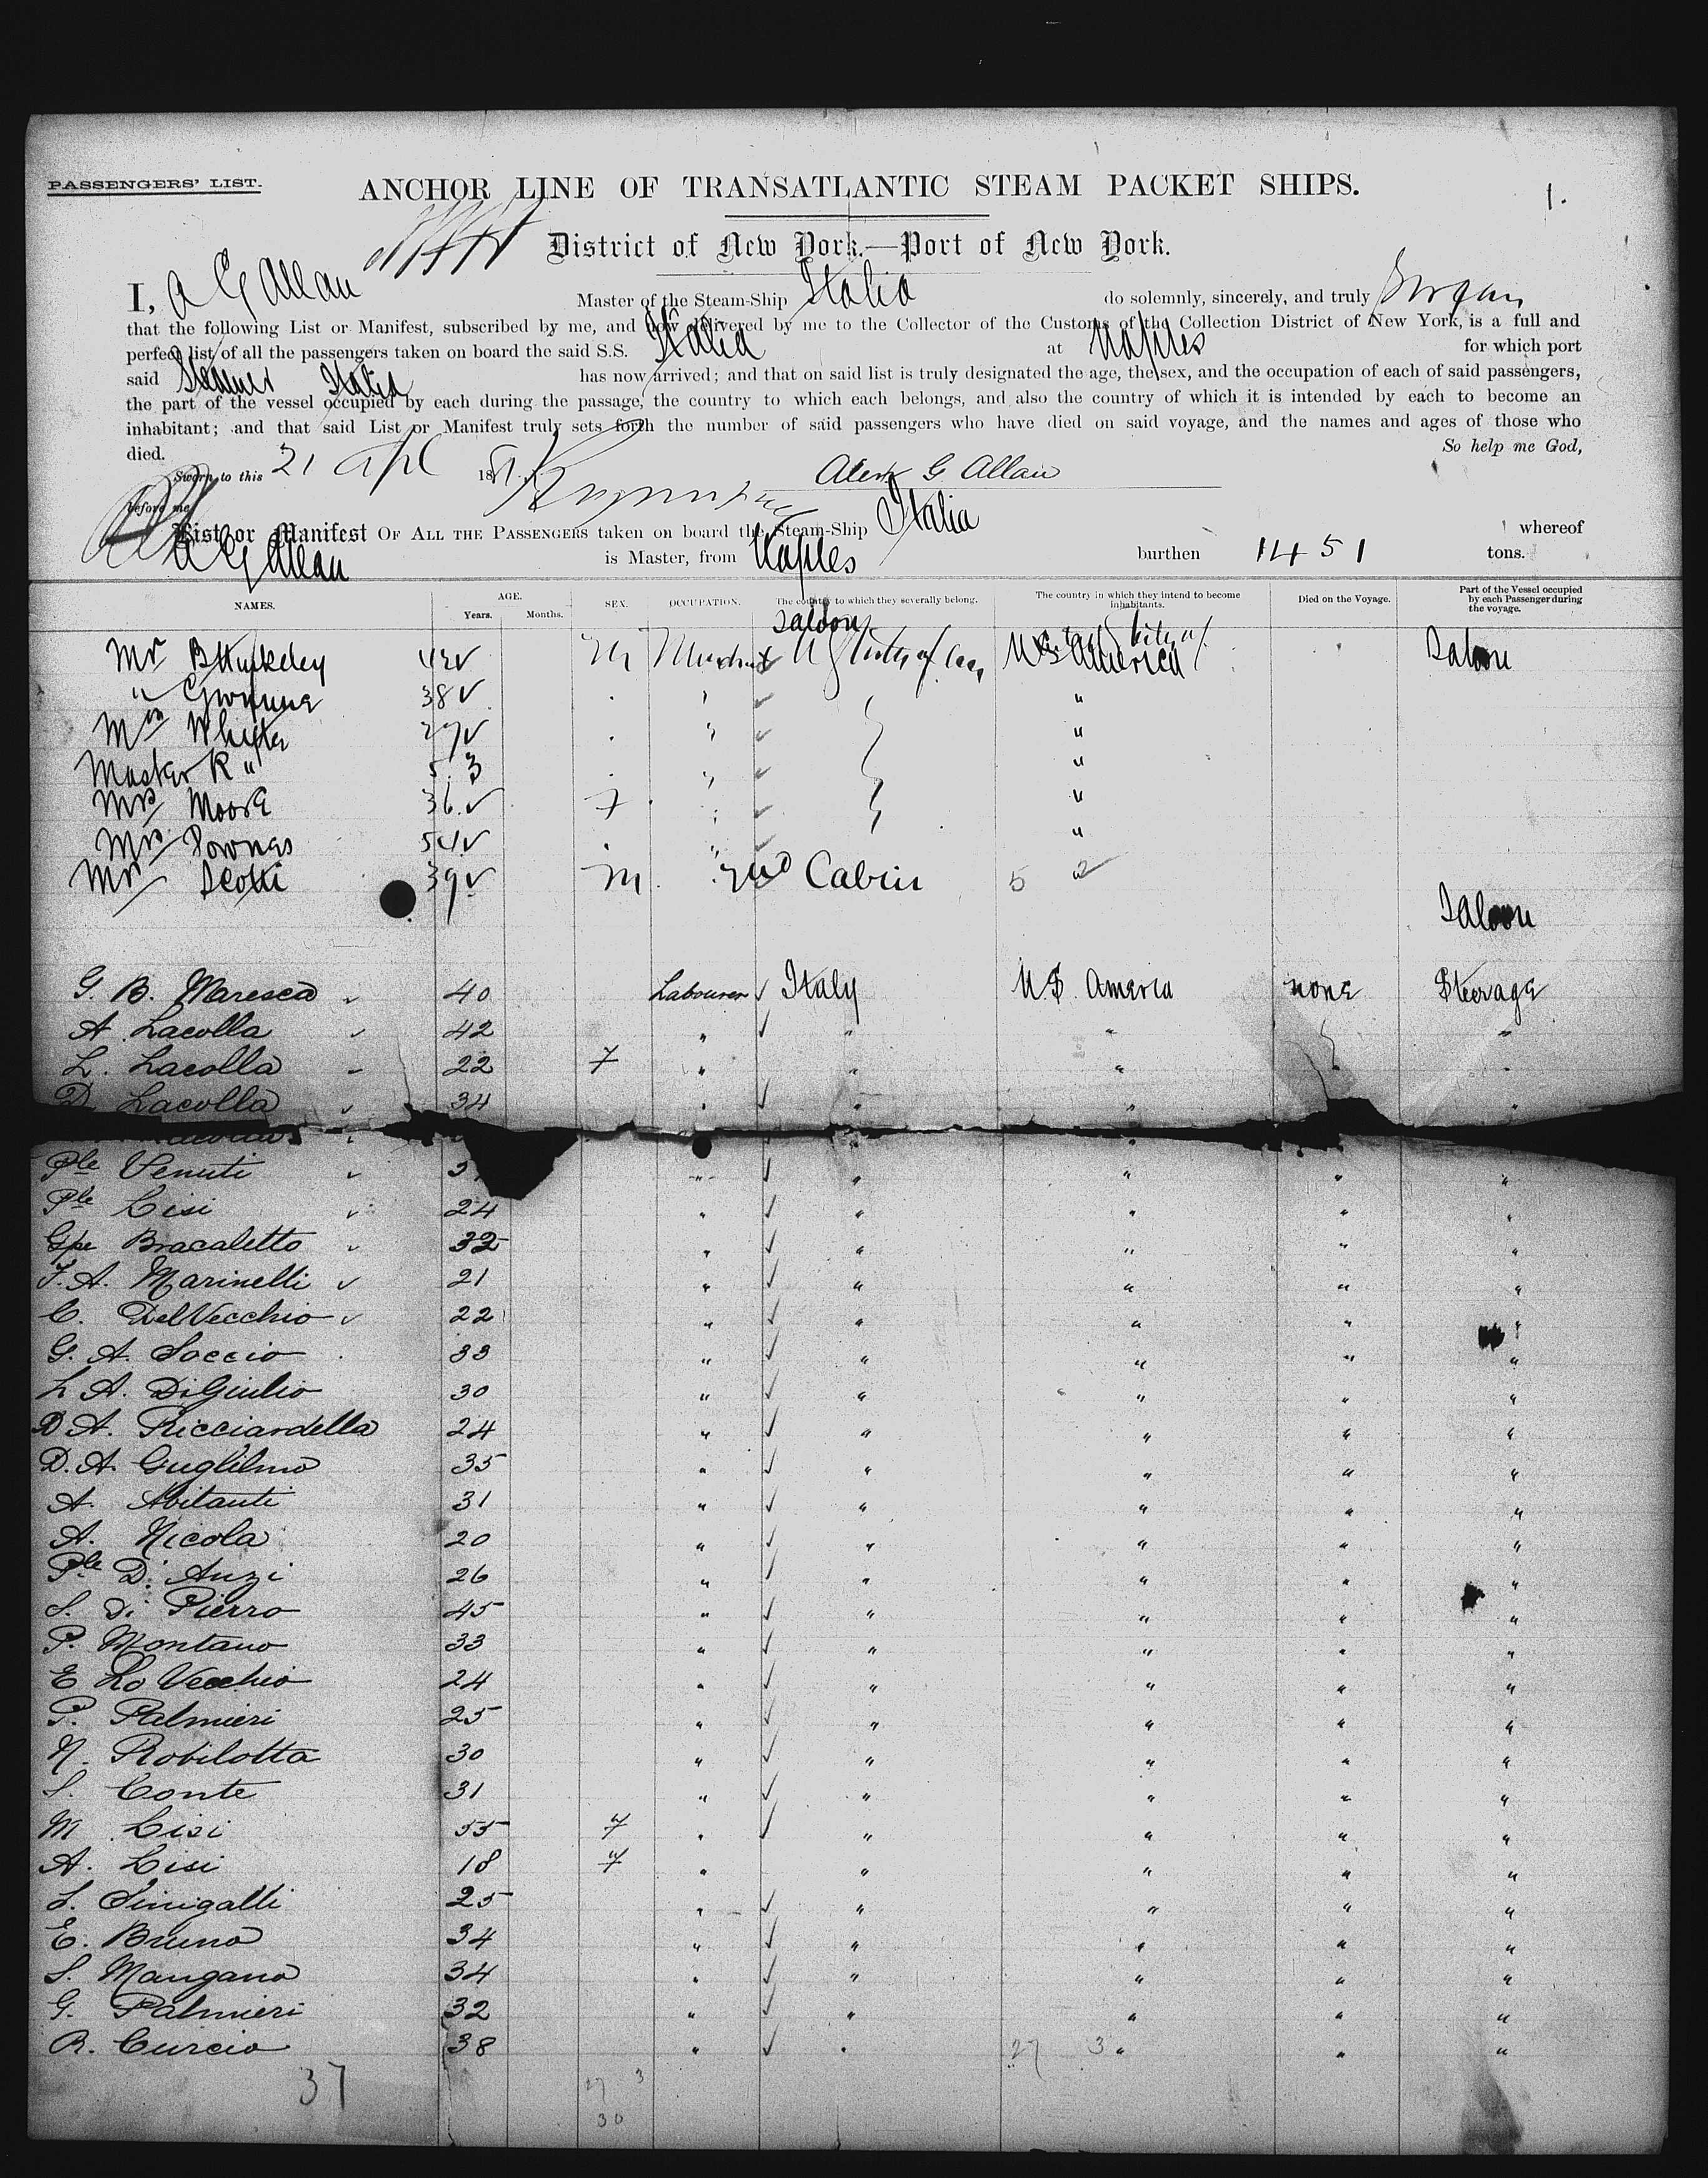 PASSENGERS' LIST.
ANCHOR LINE OF TRANSATLANTIC STEAM PACKET SHIPS.
1.
District of New York.—Port of New York.
I, A G Allan Master of the Steam-Ship Italia do solemnly, sincerely, and truly
that the following List or Manifest, subscribed by me, and now delivered by me to the Collector of the Customs of the Collection District of New York, is a full and
perfect list of all the passengers taken on board the said S.S. Italia at Naples for which port
said Steamer Italia has now arrived; and that on said list is truly designated the age, the sex, and the occupation of each of said passengers,
the part of the vessel occupied by each during the passage, the country to which each belongs, and also the country of which it is intended by each to become an
inhabitant; and that said List or Manifest truly sets forth the number of said passengers who have died on said voyage, and the names and ages of those who
died. So help me God,
Sworn to this 21 Apl 18 Alexr G Allan
before me
List or Manifest OF ALL THE PASSENGERS taken on board the Steam-Ship Italia whereof
A G Allan is Master, from Naples burthen 1451 tons.
NAMES. AGE. Years. Months. SEX. OCCUPATION. The country to which they severally belong. The country in which they intend to become inhabitants. Died on the Voyage. Part of the Vessel occupied by each Passenger during the voyage.
Saloon
Mr M U S America Saloon
" 38 "
Whyte "
Master R " "
Mrs Moore 36 F "
Mrs "
Mr Scotti 39 M 2nd Cabin 5 2
Saloon
G. B. Maresca 40 Labourer Italy U.S. America none Steerage
A. Lacolla 42 " " " "
L. Lacolla 22 F " " " "
D. Lacolla 34 " " " "
Ple Venuti " " " " "
Ple Lisi 24 " " " " "
Gpe Bracaletto 32 " " " " "
F. A. Marinelli 21 " " " " "
C. DelVecchio 22 " " " " "
G. A. Soccio 33 " " " " "
L A. DiGiulio 30 " " " " "
D A. Ricciardella 24 " " " " "
D. A. Guglilmo 35 " " " " "
A. Abitanti 31 " " " " "
A. Nicola 20 " " " " "
Ple D'Anzi 26 " " " " "
S. Di Pierro 45 " " " " "
P. Montano 33 " " " " "
E Lo Vecchio 24 " " " " "
P. Palmieri 25 " " " " "
N. Robilotta 30 " " " " "
S. Conte 31 " " " " "
M. Lisi 55 F " " " " "
A. Lisi 18 F " " " " "
L. Sinigalli 25 " " " " "
E. Bruno 34 " " " " "
S. Mangano 34 " " " " "
G. Palmieri 32 " " " " "
R. Curcio 38 " " 27 3 " " "
37 27 3
30